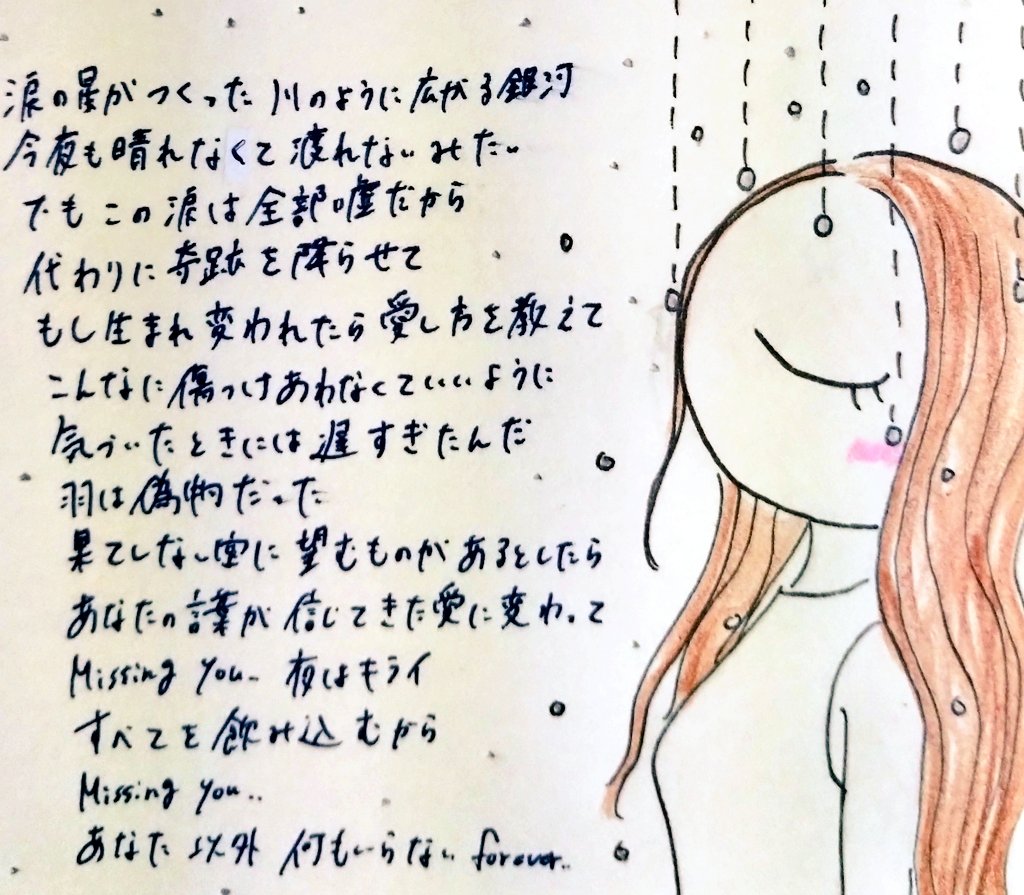 涙の星がつくった 川のように広がる銀河
今夜も晴れなくて渡れないみたい
でも この涙は全部嘘だから
代わりに奇跡を降らせて
もし生まれ変われたら愛し方を教えて
こんなに傷つけあわなくていいように
気づいたときには遅すぎたんだ
羽は偽物だった
果てしない空に望むものがあるとしたら
あなたの言葉が信じてきた愛に変わって
Missing you.. 夜はキライ
すべてを飲み込むから
Missing you..
あなた以外 何もいらない forever..